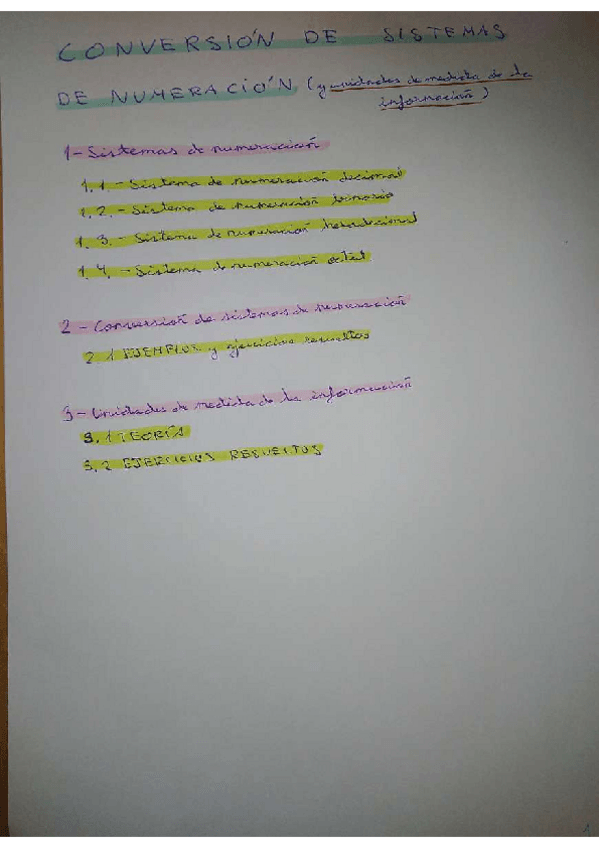 CONVERSIÓN DE SISTEMAS
DE NUMERACIÓN (y unidades de medida de la
información)
1- Sistemas de numeración
1.1.- Sistema de numeración decimal
1.2.- Sistema de numeración binario
1.3.- Sistema de numeración hexadecimal
1.4.- Sistema de numeración octal
2- Conversión de sistemas de numeración
2.1 EJEMPLOS y ejercicios resueltos
3- Unidades de medida de la información
3.1 TEORÍA
3.2 EJERCICIOS RESUELTOS
1